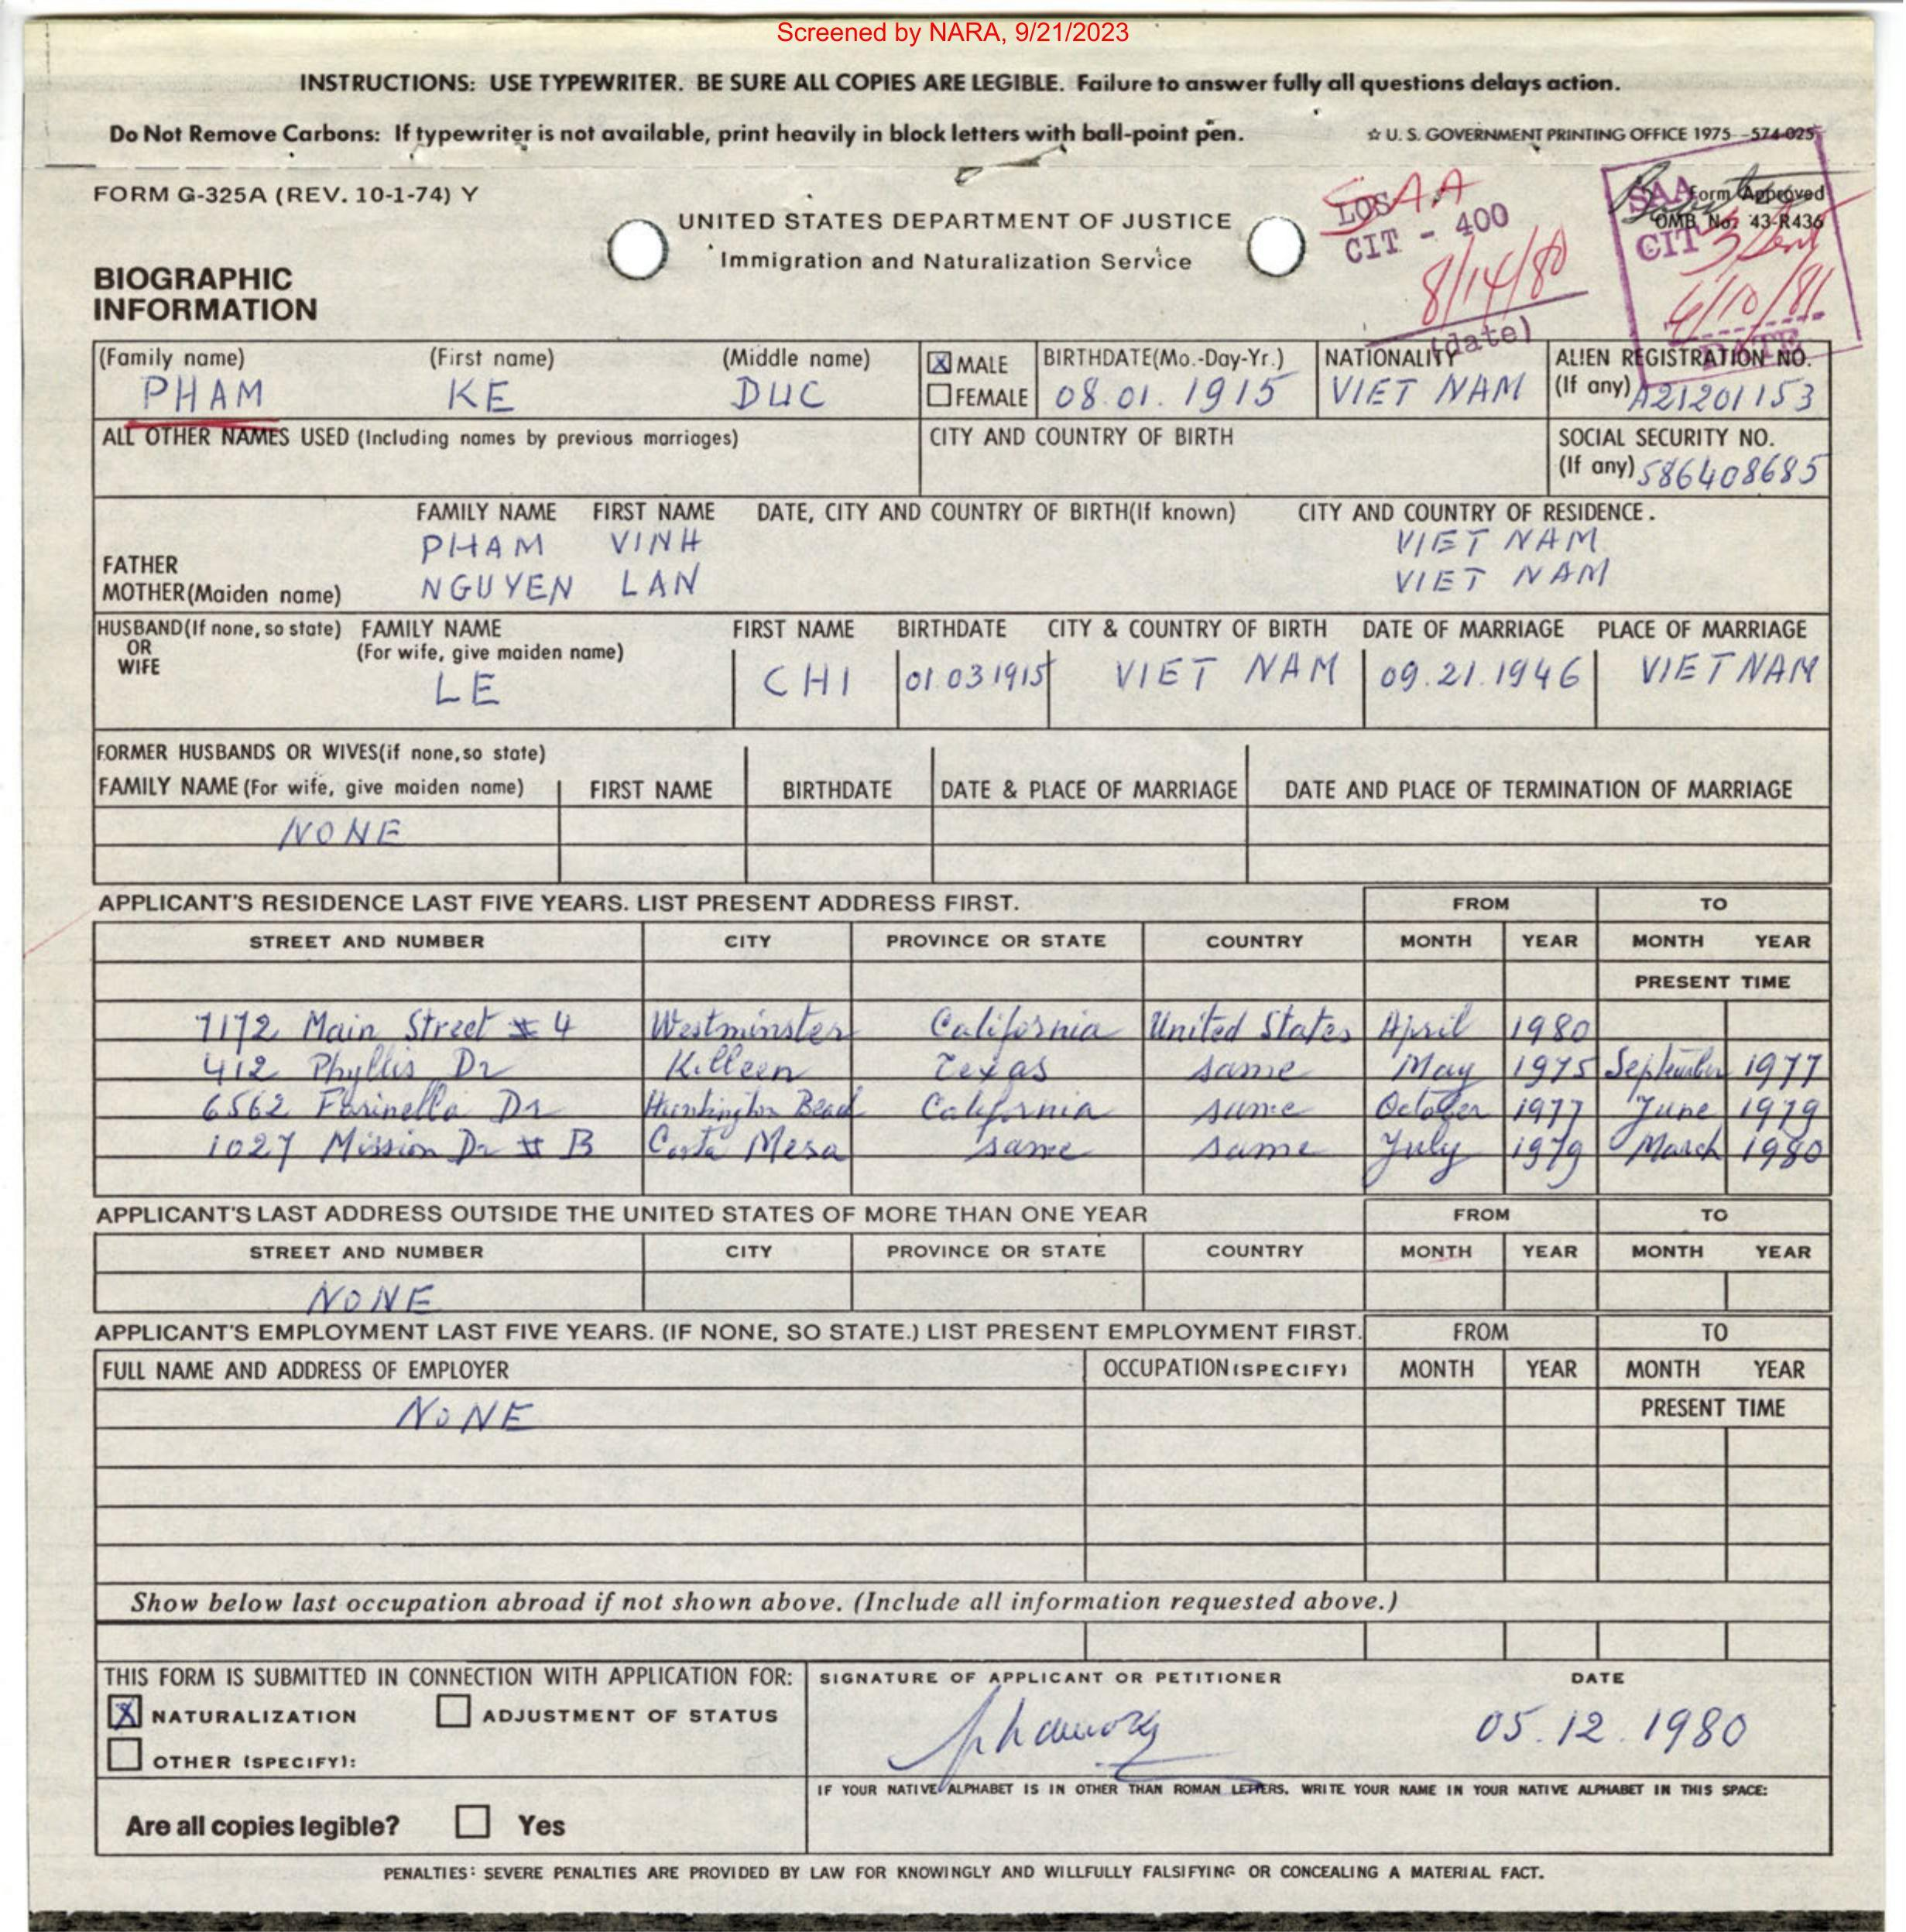 Screened by NARA, 9/21/2023
INSTRUCTIONS: USE TYPEWRITER. BE SURE ALL COPIES ARE LEGIBLE. Failure to answer fully all questions delays action.
Do Not Remove Carbons: If typewriter is not available, print heavily in block letters with ball-point pen. ☆ U. S. GOVERNMENT PRINTING OFFICE 1975—574-025
FORM G-325A (REV. 10-1-74) Y
UNITED STATES DEPARTMENT OF JUSTICE
Immigration and Naturalization Service
LOS SAA
CIT - 400
8/14/80
(date)
Form Approved
OMB No. 43-R436
SAA
CIT
6/10/81
DATE
BIOGRAPHIC
INFORMATION
(Family name) (First name) (Middle name) X MALE BIRTHDATE(Mo.-Day-Yr.) NATIONALITY ALIEN REGISTRATION NO.
PHAM KE DUC FEMALE 08.01.1915 VIET NAM (If any) A21201153
ALL OTHER NAMES USED (Including names by previous marriages) CITY AND COUNTRY OF BIRTH SOCIAL SECURITY NO.
(If any) 586408685
FAMILY NAME FIRST NAME DATE, CITY AND COUNTRY OF BIRTH(If known) CITY AND COUNTRY OF RESIDENCE.
FATHER PHAM VINH VIET NAM
MOTHER(Maiden name) NGUYEN LAN VIET NAM
HUSBAND(If none, so state) FAMILY NAME FIRST NAME BIRTHDATE CITY & COUNTRY OF BIRTH DATE OF MARRIAGE PLACE OF MARRIAGE
OR (For wife, give maiden name)
WIFE LE CHI 01.03 1915 VIET NAM 09.21.1946 VIET NAM
FORMER HUSBANDS OR WIVES(if none, so state)
FAMILY NAME (For wife, give maiden name) FIRST NAME BIRTHDATE DATE & PLACE OF MARRIAGE DATE AND PLACE OF TERMINATION OF MARRIAGE
NONE
APPLICANT'S RESIDENCE LAST FIVE YEARS. LIST PRESENT ADDRESS FIRST. FROM TO
STREET AND NUMBER CITY PROVINCE OR STATE COUNTRY MONTH YEAR MONTH YEAR
PRESENT TIME
7172 Main Street # 4 Westminster California United States April 1980
412 Phyllis Dr Killeen Texas same May 1975 September 1977
6562 Farinella Dr Huntington Beach California same October 1977 June 1979
1027 Mission Dr # B Costa Mesa same same July 1979 March 1980
APPLICANT'S LAST ADDRESS OUTSIDE THE UNITED STATES OF MORE THAN ONE YEAR FROM TO
STREET AND NUMBER CITY PROVINCE OR STATE COUNTRY MONTH YEAR MONTH YEAR
NONE
APPLICANT'S EMPLOYMENT LAST FIVE YEARS. (IF NONE, SO STATE.) LIST PRESENT EMPLOYMENT FIRST. FROM TO
FULL NAME AND ADDRESS OF EMPLOYER OCCUPATION (SPECIFY) MONTH YEAR MONTH YEAR
NONE PRESENT TIME
Show below last occupation abroad if not shown above. (Include all information requested above.)
THIS FORM IS SUBMITTED IN CONNECTION WITH APPLICATION FOR: SIGNATURE OF APPLICANT OR PETITIONER DATE
X NATURALIZATION ADJUSTMENT OF STATUS 05.12.1980
OTHER (SPECIFY):
IF YOUR NATIVE ALPHABET IS IN OTHER THAN ROMAN LETTERS, WRITE YOUR NAME IN YOUR NATIVE ALPHABET IN THIS SPACE:
Are all copies legible? Yes
PENALTIES: SEVERE PENALTIES ARE PROVIDED BY LAW FOR KNOWINGLY AND WILLFULLY FALSIFYING OR CONCEALING A MATERIAL FACT.